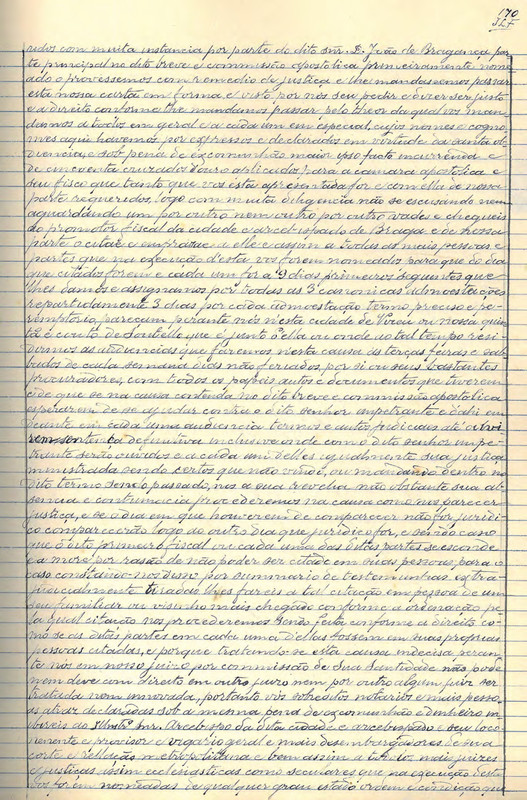 170
ridos com muita instancia por parte do dito snr. D. João de Bragança par
te principal no dito breve e commissão apostolica primeiramente nome
ado o provessemos com remedio de justiça e lhe mandassemos passar
esta nossa carta em forma e visto por nós seu pedir e dever ser justo
e a direito conforme lhe mandamos passar pelo theor da qual vos man
damos a todos em geral e a cada um em especial, cujos nomes e cogno
mes aqui havemos por expressos e declarados em virtude da santa ob
diencia e sob pena de excommunhão maior ipso facto incurrenda e
de cincoenta cruzados d'ouro aplicados para a camara apostolica e
seu fisco que tanto que vos esta apresentada for e com ella de nossa
parte requeridos, logo com muita deligencia não se escusando nem
aguardando um por outro nem outro por outro vades e chegueis
ao promotor fiscal da cidade e arcebispado de Braga e de nossa
parte o citae e emprazae a elle e assim a todas as mais pessoas e
partes que na execução d'esta vos forem nomeados para que do dia
que citados forem e cada um for a 9 dias primeiros seguintes que
lhes damos e assignamos por todas as 3 canonicas admoestações
repartidamente 3 dias por cada admoestação termo preciso e pe
remptorio, pareçam perante nós nesta cidade de ou nossa quin
tã e couto de que é junto a ella ou onde ao tal tempo resi
dirmos as audiencias que faremos nesta causa ás terças feiras e sab
bados de cada semana dias não feriados, por si ou seus bastantes
procuradores, com todos os papeis autos e documentos que tiverem
de que se na causa contenda no dito breve e commissão apostolica
esperarem de se ajudar contra o dito senhor impetrante e dahi em
deante em cada uma audiencia termos e autos judiciaes até a
sentença definitiva inclusive onde com o dito senhor impe
trante serão ouvidos e a cada um delles egualmente sua justiça
ministrada sendo certos que não vindo, ou mandando dentro no
dito termo sendo passado, nós a sua revelia não obstante sua ab
sencia e contumacia procederemos na causa como nos parecer
justiça, e se o dia em que houverem de comparecer não for juridi
co comparecerão logo ao outro dia que juridico for, e sendo caso
que o dito promotor fiscal ou cada uma das ditas partes se esconde
e a more por rasão de não poder ser citado em suas pessoas, para o
caso constando-nos disso por summario de testemunhas extra
judicialmente tiradas lhes fareis a tal citação em pessoa de um
seu familiar ou visinho mais chegado conforme a ordenação pe
la qual citação nos procederemos sendo feita conforme a direito co
mo se as ditas partes em cada uma d'ellas fossem em suas proprias
pessoas citadas, e porque tratando-se esta causa indecisa peran
te nós em nosso juizo por commissão de Sua Santidade não pode
nem deve com direito em outro juizo nem por outro algum juiz ser
tratada nem innovada, portanto vós sobreditos notarios e mais pesso
as atraz declaradas sob a mesma pena de excommunhão e dinheiro in
hibireis ao Illustr.º Snr. Arcebispo da dita cidade e arcebispado e seu loco
tenente e provisor e vigario geral e mais desembargadores de sua
corte e relação metropolitana e bem assim a todos mais juizes
e justiças assim ecclesiasticas como seculares que na execução desta
vos forem nomeadas de qualquer grau estado ordem e condição que